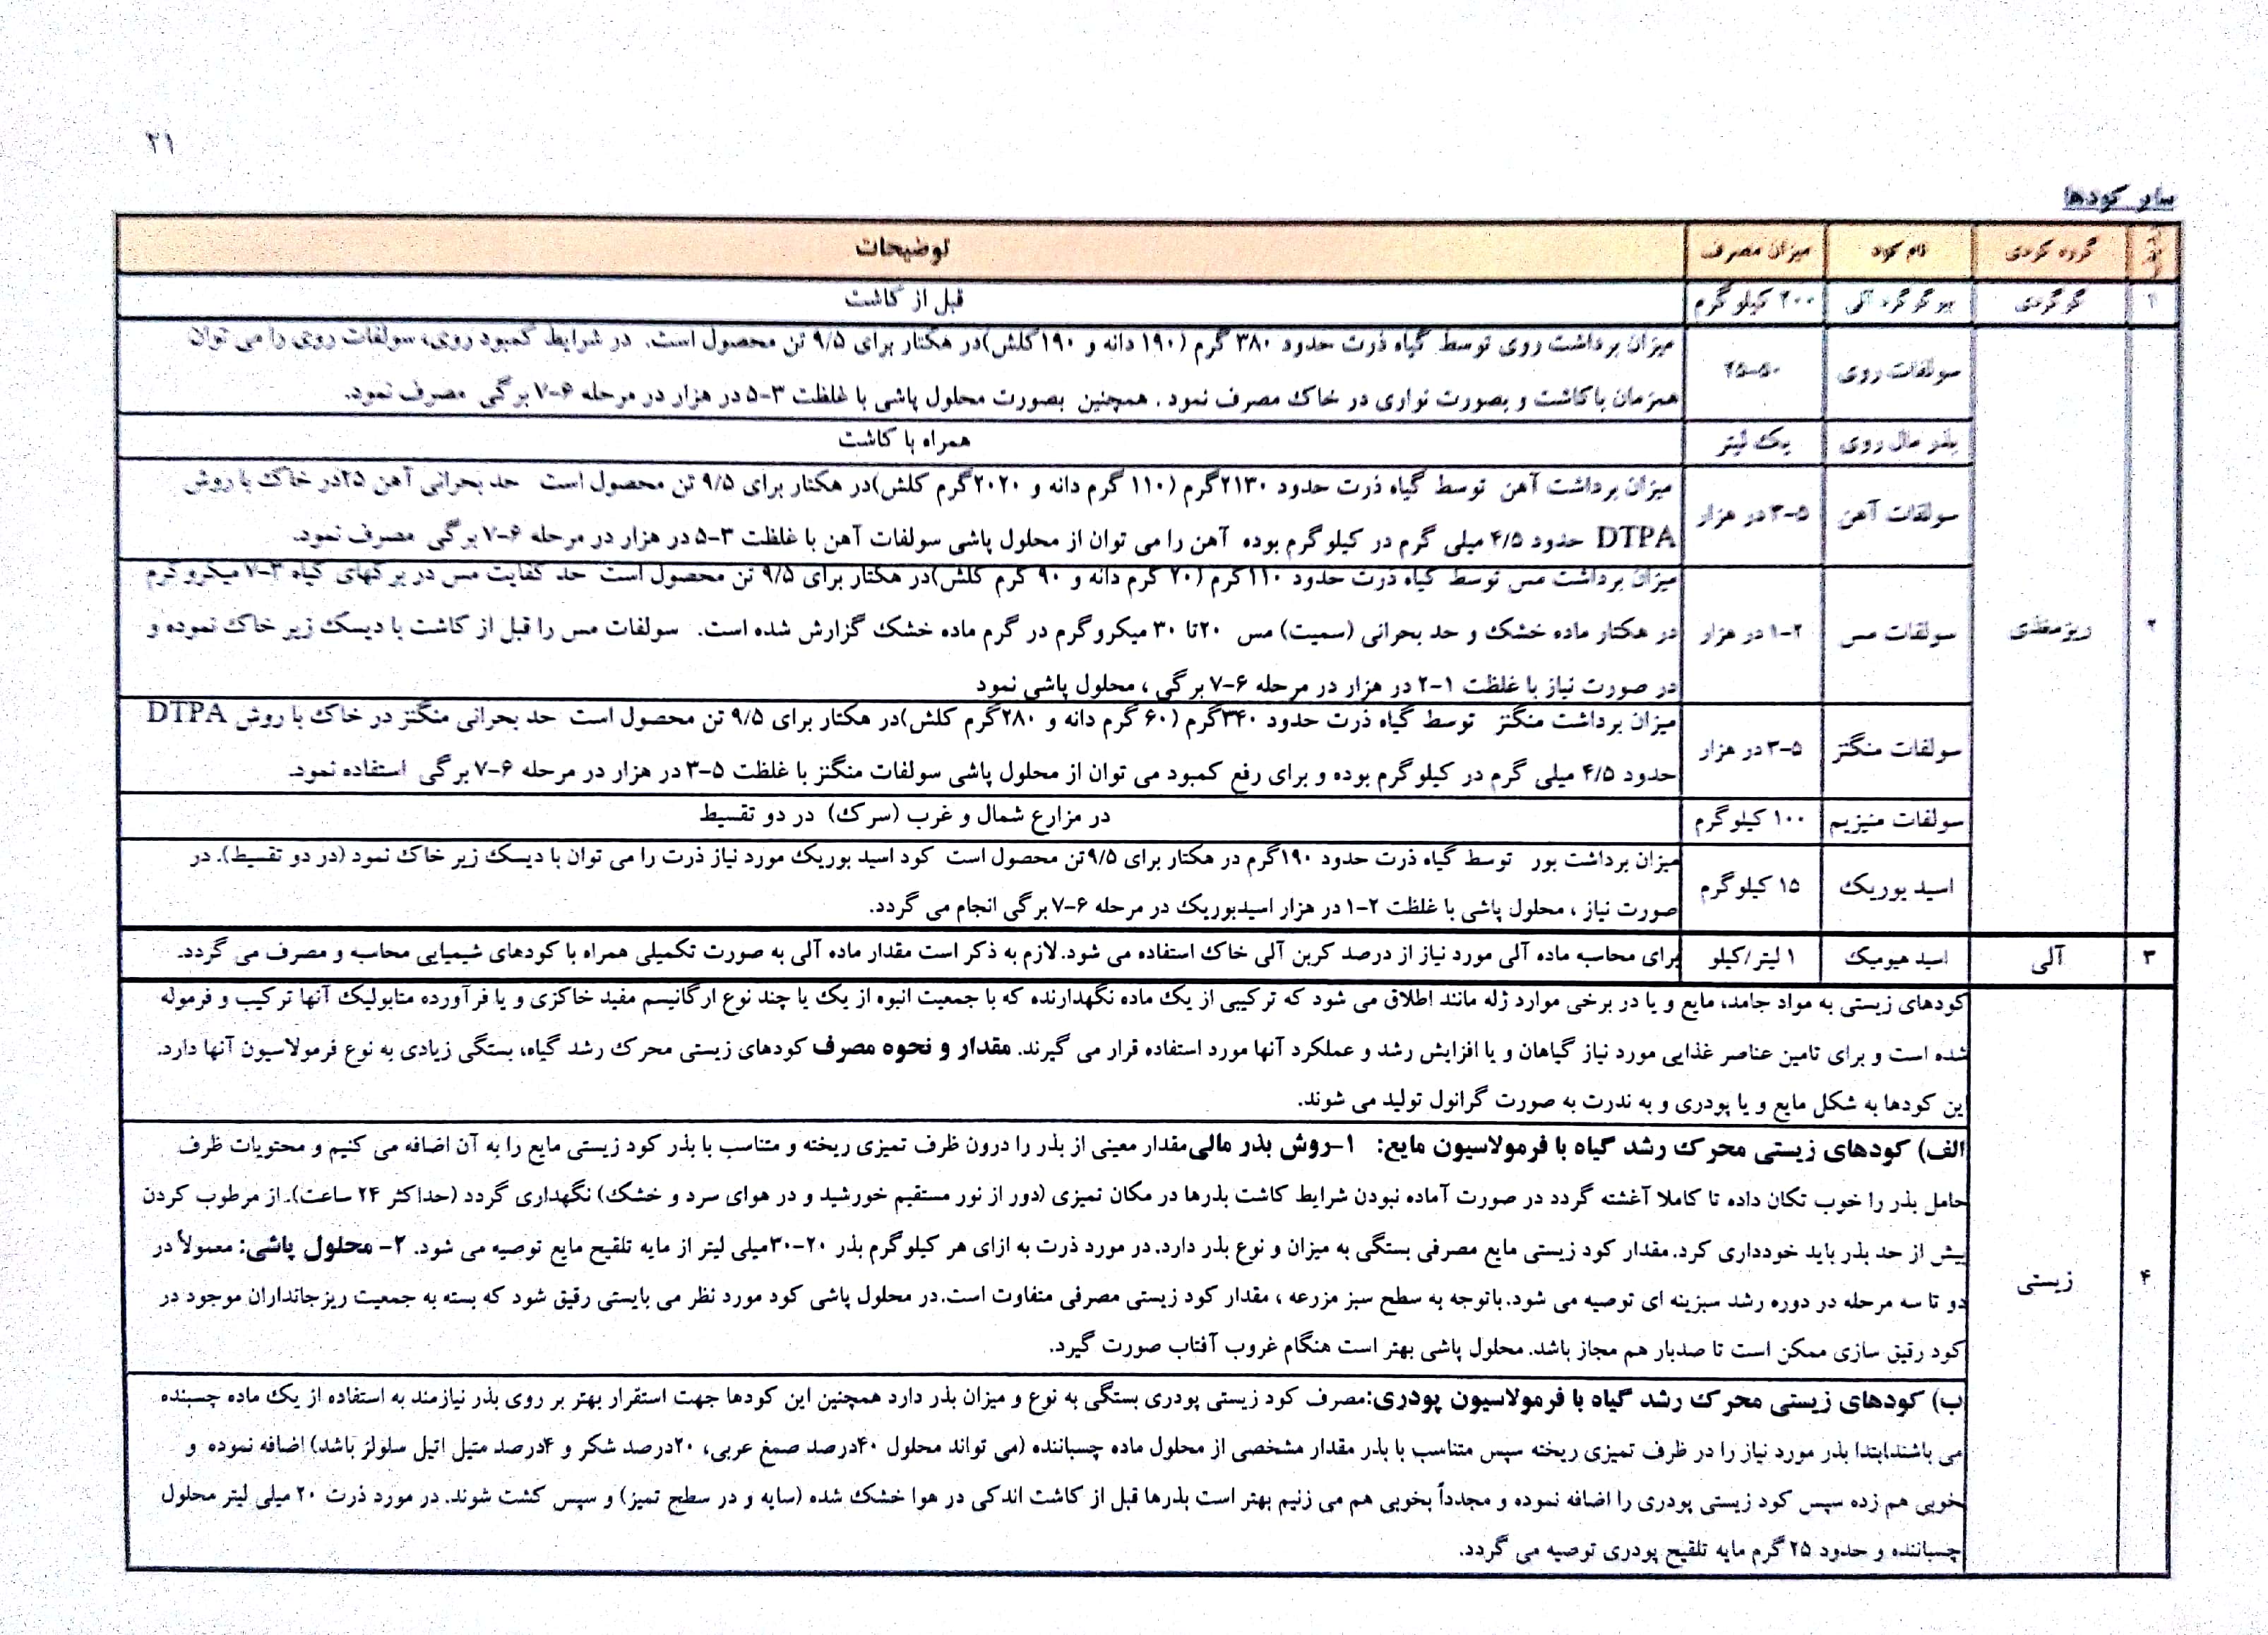 ۲۱
سایر کودها
گروه کودی
نام کود
میزان مصرف
توضیحات
۱
گوگردی
گوگرد آلی
۲۰۰ کیلوگرم
قبل از کاشت
۲
ریزمغذی
سولفات روی
۲۵-۵۰
میزان برداشت روی توسط گیاه ذرت حدود ۳۸۰ گرم (۱۹۰ دانه و ۱۹۰ کلش)در هکتار برای ۹/۵ تن محصول است. در شرایط کمبود روی، سولفات روی را می توان
همزمان باکاشت و بصورت نواری در خاک مصرف نمود . همچنین بصورت محلول پاشی با غلظت ۳-۵ در هزار در مرحله ۶-۷ برگی مصرف نمود.
بذر مال روی
یک لیتر
همراه با کاشت
سولفات آهن
۳-۵ در هزار
میزان برداشت آهن توسط گیاه ذرت حدود ۲۱۳۰گرم (۱۱۰ گرم دانه و ۲۰۲۰گرم کلش)در هکتار برای ۹/۵ تن محصول است حد بحرانی آهن ۲۵در خاک با روش
DTPA حدود ۴/۵ میلی گرم در کیلوگرم بوده آهن را می توان از محلول پاشی سولفات آهن با غلظت ۳-۵ در هزار در مرحله ۶-۷ برگی مصرف نمود.
سولفات مس
۱-۲ در هزار
میزان برداشت مس توسط گیاه ذرت حدود ۱۱۰گرم (۲۰ گرم دانه و ۹۰ گرم کلش)در هکتار برای ۹/۵ تن محصول است حد کفایت مس در برگهای گیاه ۳-۷ میکروگرم
در هکتار ماده خشک و حد بحرانی (سمیت) مس ۲۰تا ۳۰ میکروگرم در گرم ماده خشک گزارش شده است. سولفات مس را قبل از کاشت با دیسک زیر خاک نموده و
در صورت نیاز با غلظت ۱-۲ در هزار در مرحله ۶-۷ برگی ، محلول پاشی نمود
سولفات منگنز
۳-۵ در هزار
میزان برداشت منگنز توسط گیاه ذرت حدود ۳۴۰گرم (۶۰ گرم دانه و ۲۸۰گرم کلش)در هکتار برای ۹/۵ تن محصول است حد بحرانی منگنز در خاک با روش DTPA
حدود ۴/۵ میلی گرم در کیلوگرم بوده و برای رفع کمبود می توان از محلول پاشی سولفات منگنز با غلظت ۵-۳ در هزار در مرحله ۶-۷ برگی استفاده نمود.
سولفات منیزیم
۱۰۰ کیلوگرم
در مزارع شمال و غرب (سرک) در دو تقسیط
اسید بوریک
۱۵ کیلوگرم
میزان برداشت بور توسط گیاه ذرت حدود ۱۹۰گرم در هکتار برای ۹/۵تن محصول است کود اسید بوریک مورد نیاز ذرت را می توان با دیسک زیر خاک نمود (در دو تقسیط). در
صورت نیاز ، محلول پاشی با غلظت ۲-۱ در هزار اسیدبوریک در مرحله ۶-۷ برگی انجام می گردد.
۳
آلی
اسید هیومیک
۱ لیتر/کیلو
برای محاسبه ماده آلی مورد نیاز از درصد کربن آلی خاک استفاده می شود.لازم به ذکر است مقدار ماده آلی به صورت تکمیلی همراه با کودهای شیمیایی محاسبه و مصرف می گردد.
۴
زیستی
کودهای زیستی به مواد جامد، مایع و یا در برخی موارد ژله مانند اطلاق می شود که ترکیبی از یک ماده نگهدارنده که با جمعیت انبوه از یک یا چند نوع ارگانیسم مفید خاکزی و یا فرآورده متابولیک آنها ترکیب و فرموله
شده است و برای تامین عناصر غذایی مورد نیاز گیاهان و یا افزایش رشد و عملکرد آنها مورد استفاده قرار می گیرند. مقدار و نحوه مصرف کودهای زیستی محرک رشد گیاه، بستگی زیادی به نوع فرمولاسیون آنها دارد.
این کودها به شکل مایع و یا پودری و به ندرت به صورت گرانول تولید می شوند.
الف) کودهای زیستی محرک رشد گیاه با فرمولاسیون مایع: ۱-روش بذر مالی مقدار معینی از بذر را درون ظرف تمیزی ریخته و متناسب با بذر کود زیستی مایع را به آن اضافه می کنیم و محتویات ظرف
حامل بذر را خوب تکان داده تا کاملا آغشته گردد در صورت آماده نبودن شرایط کاشت بذرها در مکان تمیزی (دور از نور مستقیم خورشید و در هوای سرد و خشک) نگهداری گردد (حداکثر ۲۴ ساعت).از مرطوب کردن
بیش از حد بذر باید خودداری کرد.مقدار کود زیستی مایع مصرفی بستگی به میزان و نوع بذر دارد.در مورد ذرت به ازای هر کیلوگرم بذر ۲۰-۳۰میلی لیتر از مایه تلقیح مایع توصیه می شود. ۲- محلول پاشی: معمولاً در
دو تا سه مرحله در دوره رشد سبزینه ای توصیه می شود.باتوجه به سطح سبز مزرعه ، مقدار کود زیستی مصرفی متفاوت است.در محلول پاشی کود مورد نظر می بایستی رقیق شود که بسته به جمعیت ریزجانداران موجود در
کود رقیق سازی ممکن است تا صدبار هم مجاز باشد. محلول پاشی بهتر است هنگام غروب آفتاب صورت گیرد.
ب) کودهای زیستی محرک رشد گیاه با فرمولاسیون پودری:مصرف کود زیستی پودری بستگی به نوع و میزان بذر دارد همچنین این کودها جهت استقرار بهتر بر روی بذر نیازمند به استفاده از یک ماده چسبنده
می باشندابتدا بذر مورد نیاز را در ظرف تمیزی ریخته سپس متناسب با بذر مقدار مشخصی از محلول ماده چسباننده (می تواند محلول ۴۰درصد صمغ عربی، ۲۰درصد شکر و ۴درصد متیل اتیل سلولز باشد) اضافه نموده و
بخوبی هم زده سپس کود زیستی پودری را اضافه نموده و مجدداً بخوبی هم می زنیم بهتر است بذرها قبل از کاشت اندکی در هوا خشک شده (سایه و در سطح تمیز) و سپس کشت شوند. در مورد ذرت ۲۰ میلی لیتر محلول
چسباننده و حدود ۲۵ گرم مایه تلقیح پودری توصیه می گردد.